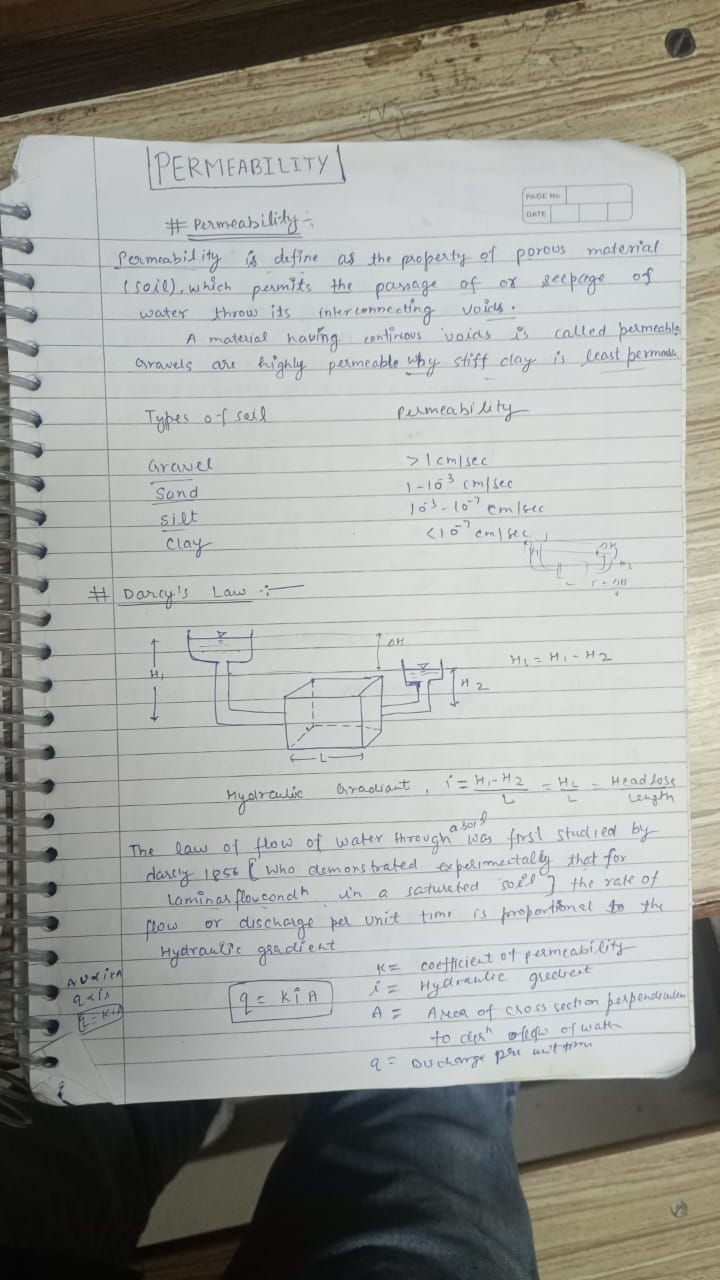 PERMEABILITY
PAGE No
DATE
# Permeability :-
Permeability is define as the property of porous material
(soil), which permits the passage of or seepage of
water throw its interconnecting voids.
A material having continous voids is called permeable
Gravels are highly permeable why stiff clay is least permeable
Types of soil Permeability
Gravel >1 cm/sec
Sand 1-10⁻³ cm/sec
Silt 10⁻³-10⁻⁷ cm/sec
Clay <10⁻⁷ cm/sec
# Darcy's Law :-
H₁ ΔH H2 HL = H1 - H2
L
Hydraulic Gradiant, i = H1-H2/L = HL/L = Head lose/Length
The law of flow of water through a soil was first studied by
darcy 1856 [ Who demonstrated experimentally that for
Laminar flow condn in a saturated soil ] the rate of
flow or discharge per unit time is proportional to the
Hydraulic gradient
K = coefficient of permeability
i = Hydraulic gredient
q = K i A
A = Area of cross section perpendicular
to dirn of flow of water
q = Discharge per unit time
q = KiA